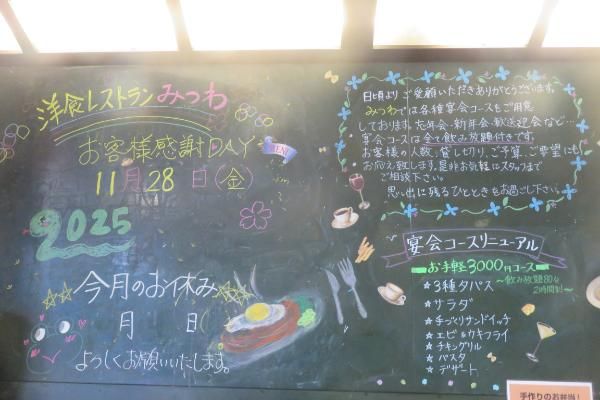 洋食レストランみつわ
お客様感謝DAY
11月28日(金)
2025
今月のお休み
月 日
よろしくお願いいたします。
日頃よりご愛顧いただきありがとうございます。
みつわでは各種宴会コースをご用意
しております。忘年会、新年会、歓送迎会など…
宴会コースは全て飲み放題付きです。
お客様の人数、貸し切り、ご予算、ご要望にも
お応え致します。是非お気軽にスタッフまで
ご相談下さい。
思い出に残るひとときをお過ごし下さい。
宴会コースリニューアル
お手軽3000円コース
〜飲み放題80分
2時間制〜
★3種タパス
★サラダ
★手づくりサンドイッチ
★エビ&カキフライ
★チキングリル
★パスタ
★デザート
手作りのお弁当!